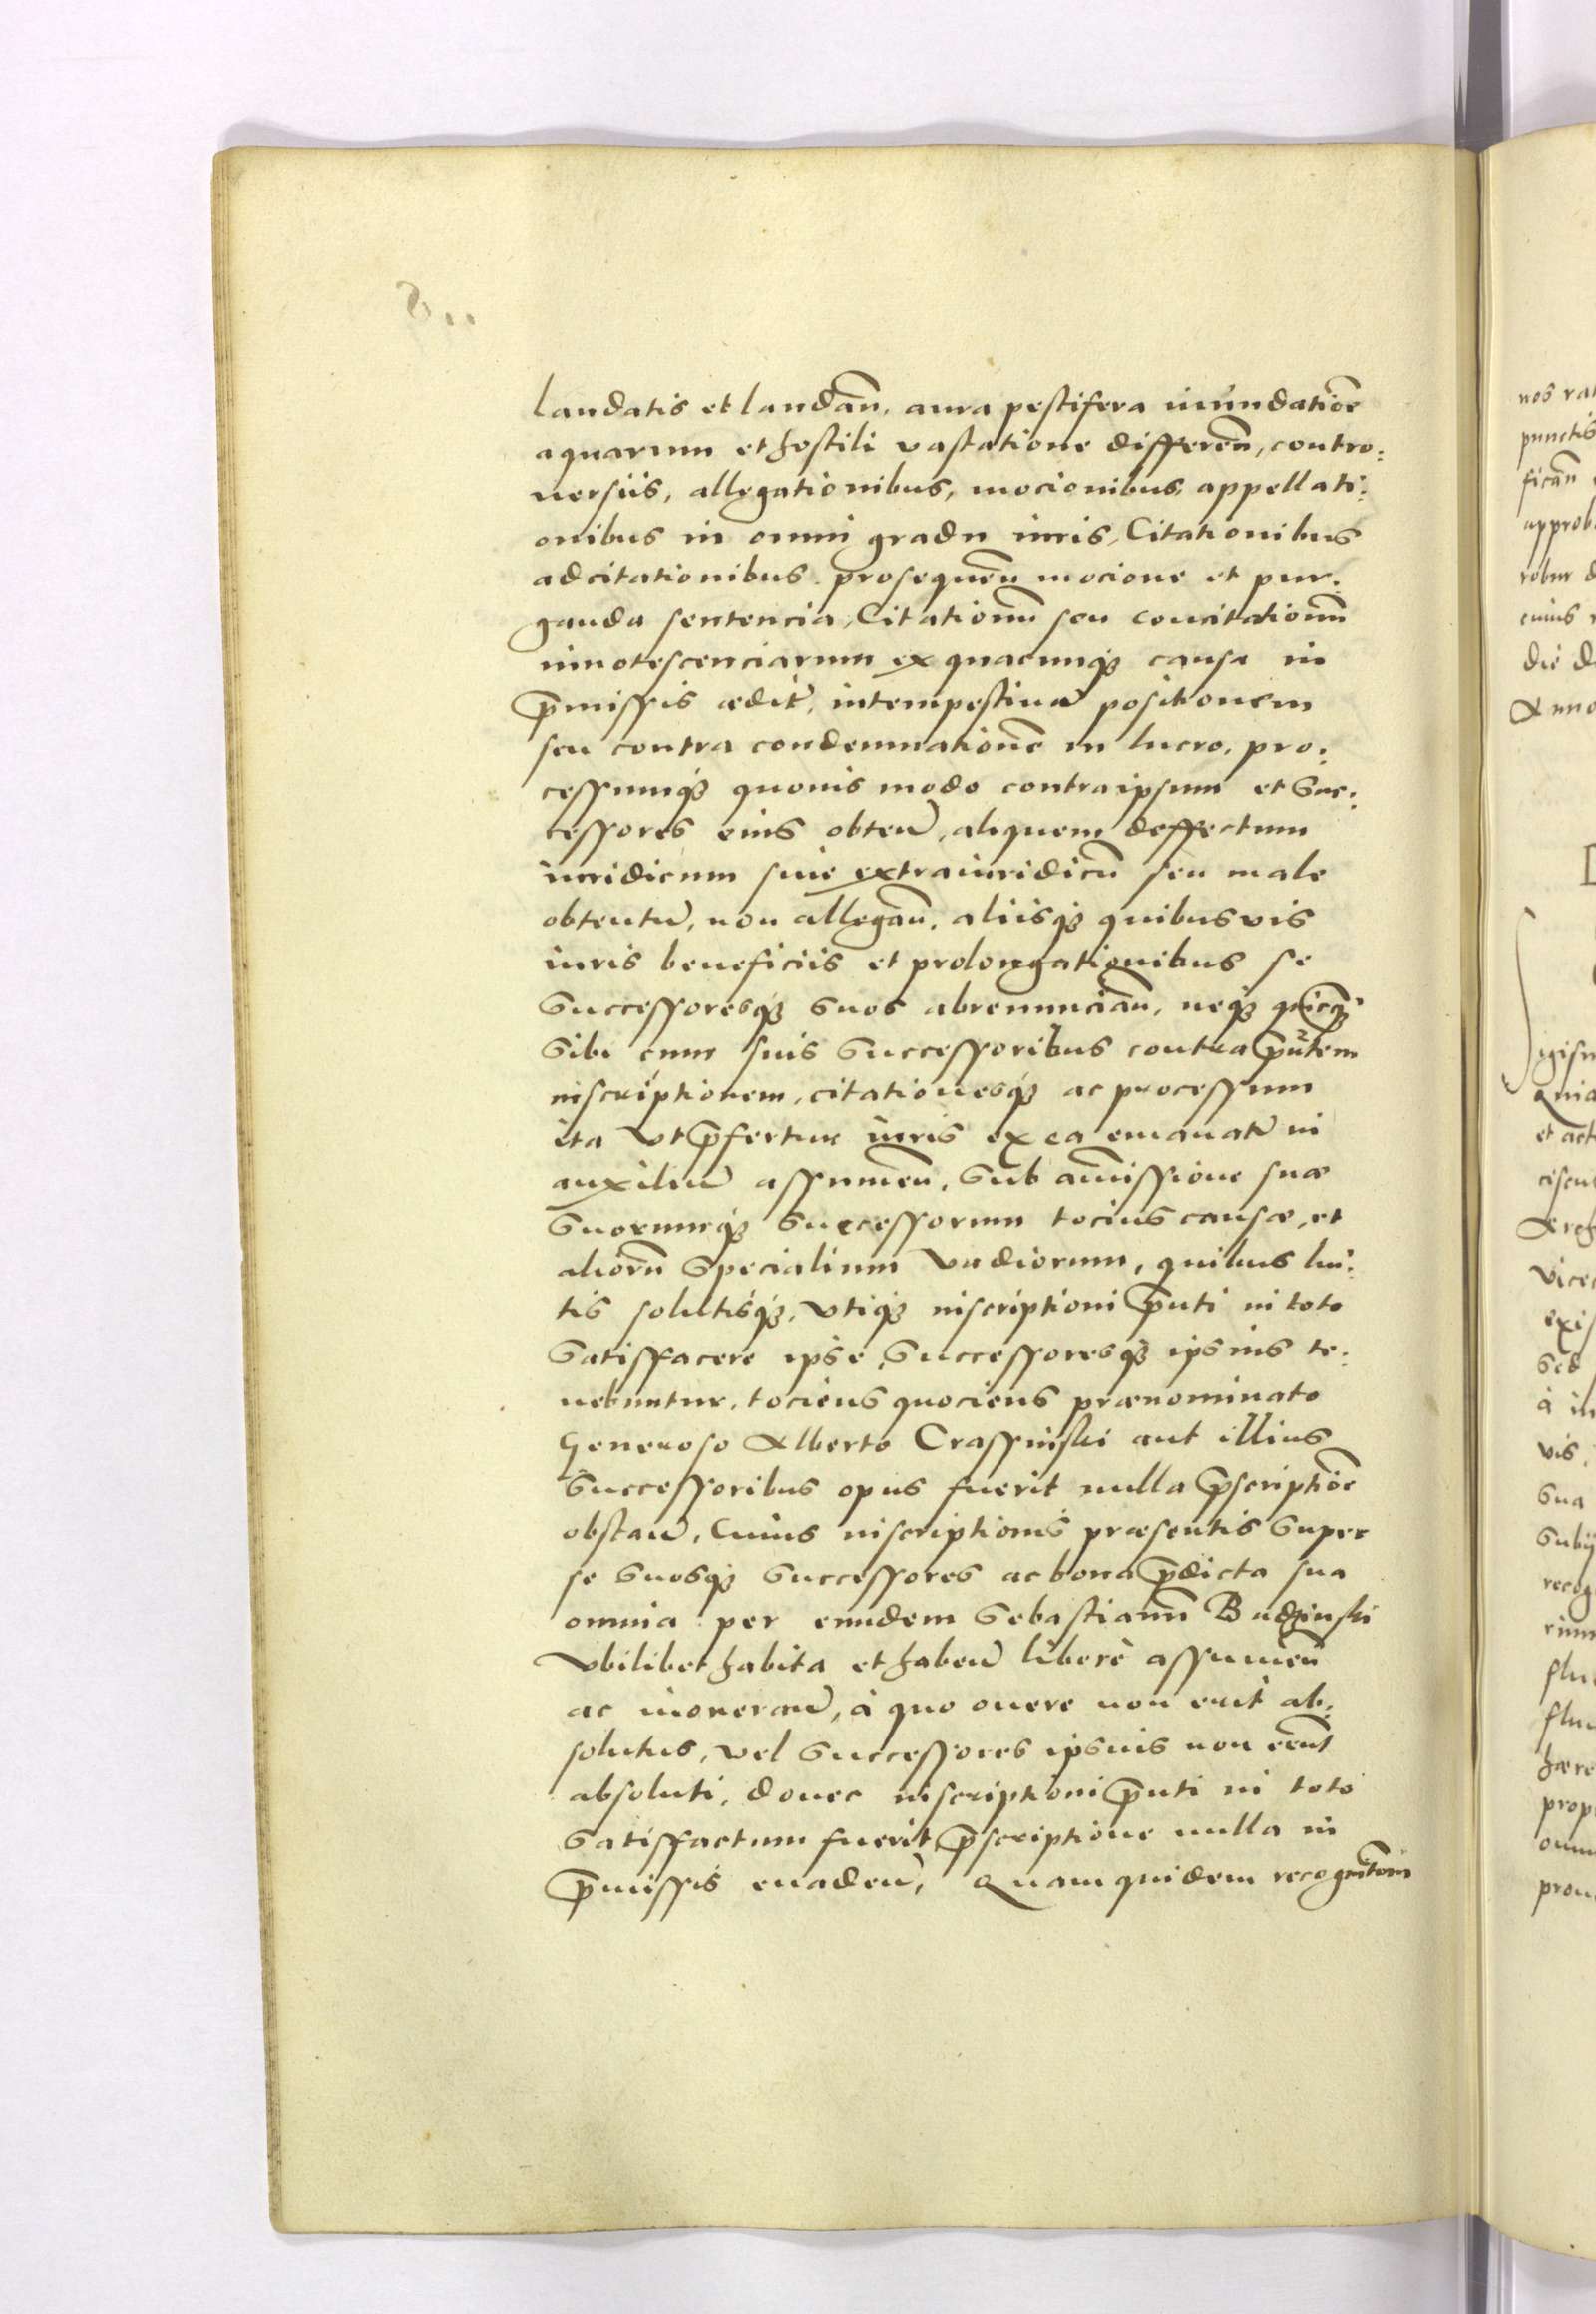 laudatis et laudan̄, aura pestifera inundatiōe
aquarum et hostili vastatione differen̄, contro:
uersiis, allegationibus, mocionibus, appellati:
onibus in omni gradu iuris, Citationibus
adcitationibus prosequen̄ mocione et pur:
ganda sentencia, Citationū seu concitationū
innotescenciarum ex quacunqȝ causa in
p̄missis ædit̄, intempestiuā positionem
seu contra condemnationē in lucro, pro:
cessumqȝ quouis modo contra ipsum et suc:
cessores eius obten̄, aliquem deffectum
iuridicum siue extraiuridicū seu male
obtentū, non allegan̄, aliisqȝ quibusvis
iuris beneficiis et prolongationibus se
successoresqȝ suos abrenuncian̄, neqȝ quicqȝ
sibi cum suis successoribus contra p̄ntem
inscriptionem, citationesqȝ ac processum
ita vt p̄fertur iuris ex ea emanatū in
auxiliū assumen̄, sub amissione suæ
suorumqȝ successorum tocius causæ, et
aliorū specialium vadiorum, quibus lui:
tis solutisqȝ, vtiqȝ inscriptioni p̄nti in toto
satisfacere ipse successoresqȝ ipsius te:
nebuntur, tociens quociens prænominato
Generoso Alberto Crassinski aut illius
successoribus opus fuerit nulla p̄scriptiōe
obstan̄, Cuius inscriptionis præsentis super
se suosqȝ successores ac bona p̄dicta sua
omnia per eundem Sebastianū Budzinski
vbilibet habita et haben̄ liberè assumen̄
ac inoneran̄, à quo onere non erit ab:
solutus, vel successores ipsius non erūt
absoluti, donec inscriptioni p̄nti in toto
satisfactum fuerit p̄scriptione nulla in
p̄missis euaden̄, Quam quidem recognitionē
nos
punctis
fican̄
approb
robur
cuius
die
Anno
et
vice
exis
sed
à
vis,
sua
recog
hære
prop